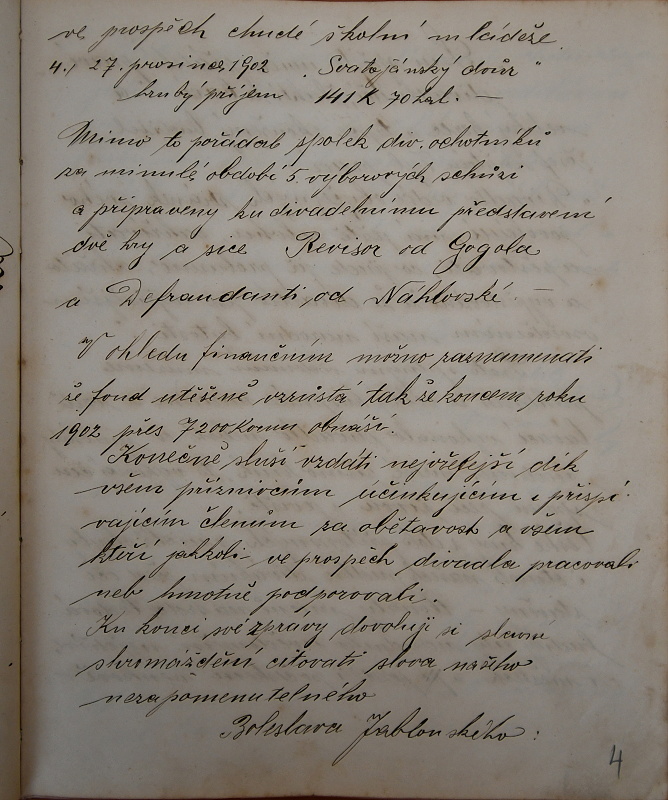 ve prospěch chudé školní mládeže.
4.) 27. prosince 1902 „Svatojánský dvůr"
hrubý příjem 141 K 70 hal. —
Mimo to pořádal spolek div. ochotníků
za minulé období 5 výborových schůzí
a připraveny ku divadelnímu představení
dvě hry a sice Revisor od Gogola
a Defraudanti od Náhlovské. —
V ohledu finančním možno zaznamenati
že fond utěšeně vzrůstá tak že koncem roku
1902 přes 7200 korun obnáší.
Konečně sluší vzdáti nejvřelejší dík
všem příznivcům účinkujícím i přispí-
vajícím členům za obětavost a všem
kteří jakkoli ve prospěch divadla pracovali
neb hmotně podporovali.
Ku konci své zprávy dovoluji si slavné
shromáždění citovati slova našeho
nezapomenutelného
Boleslava Jablonského:
4